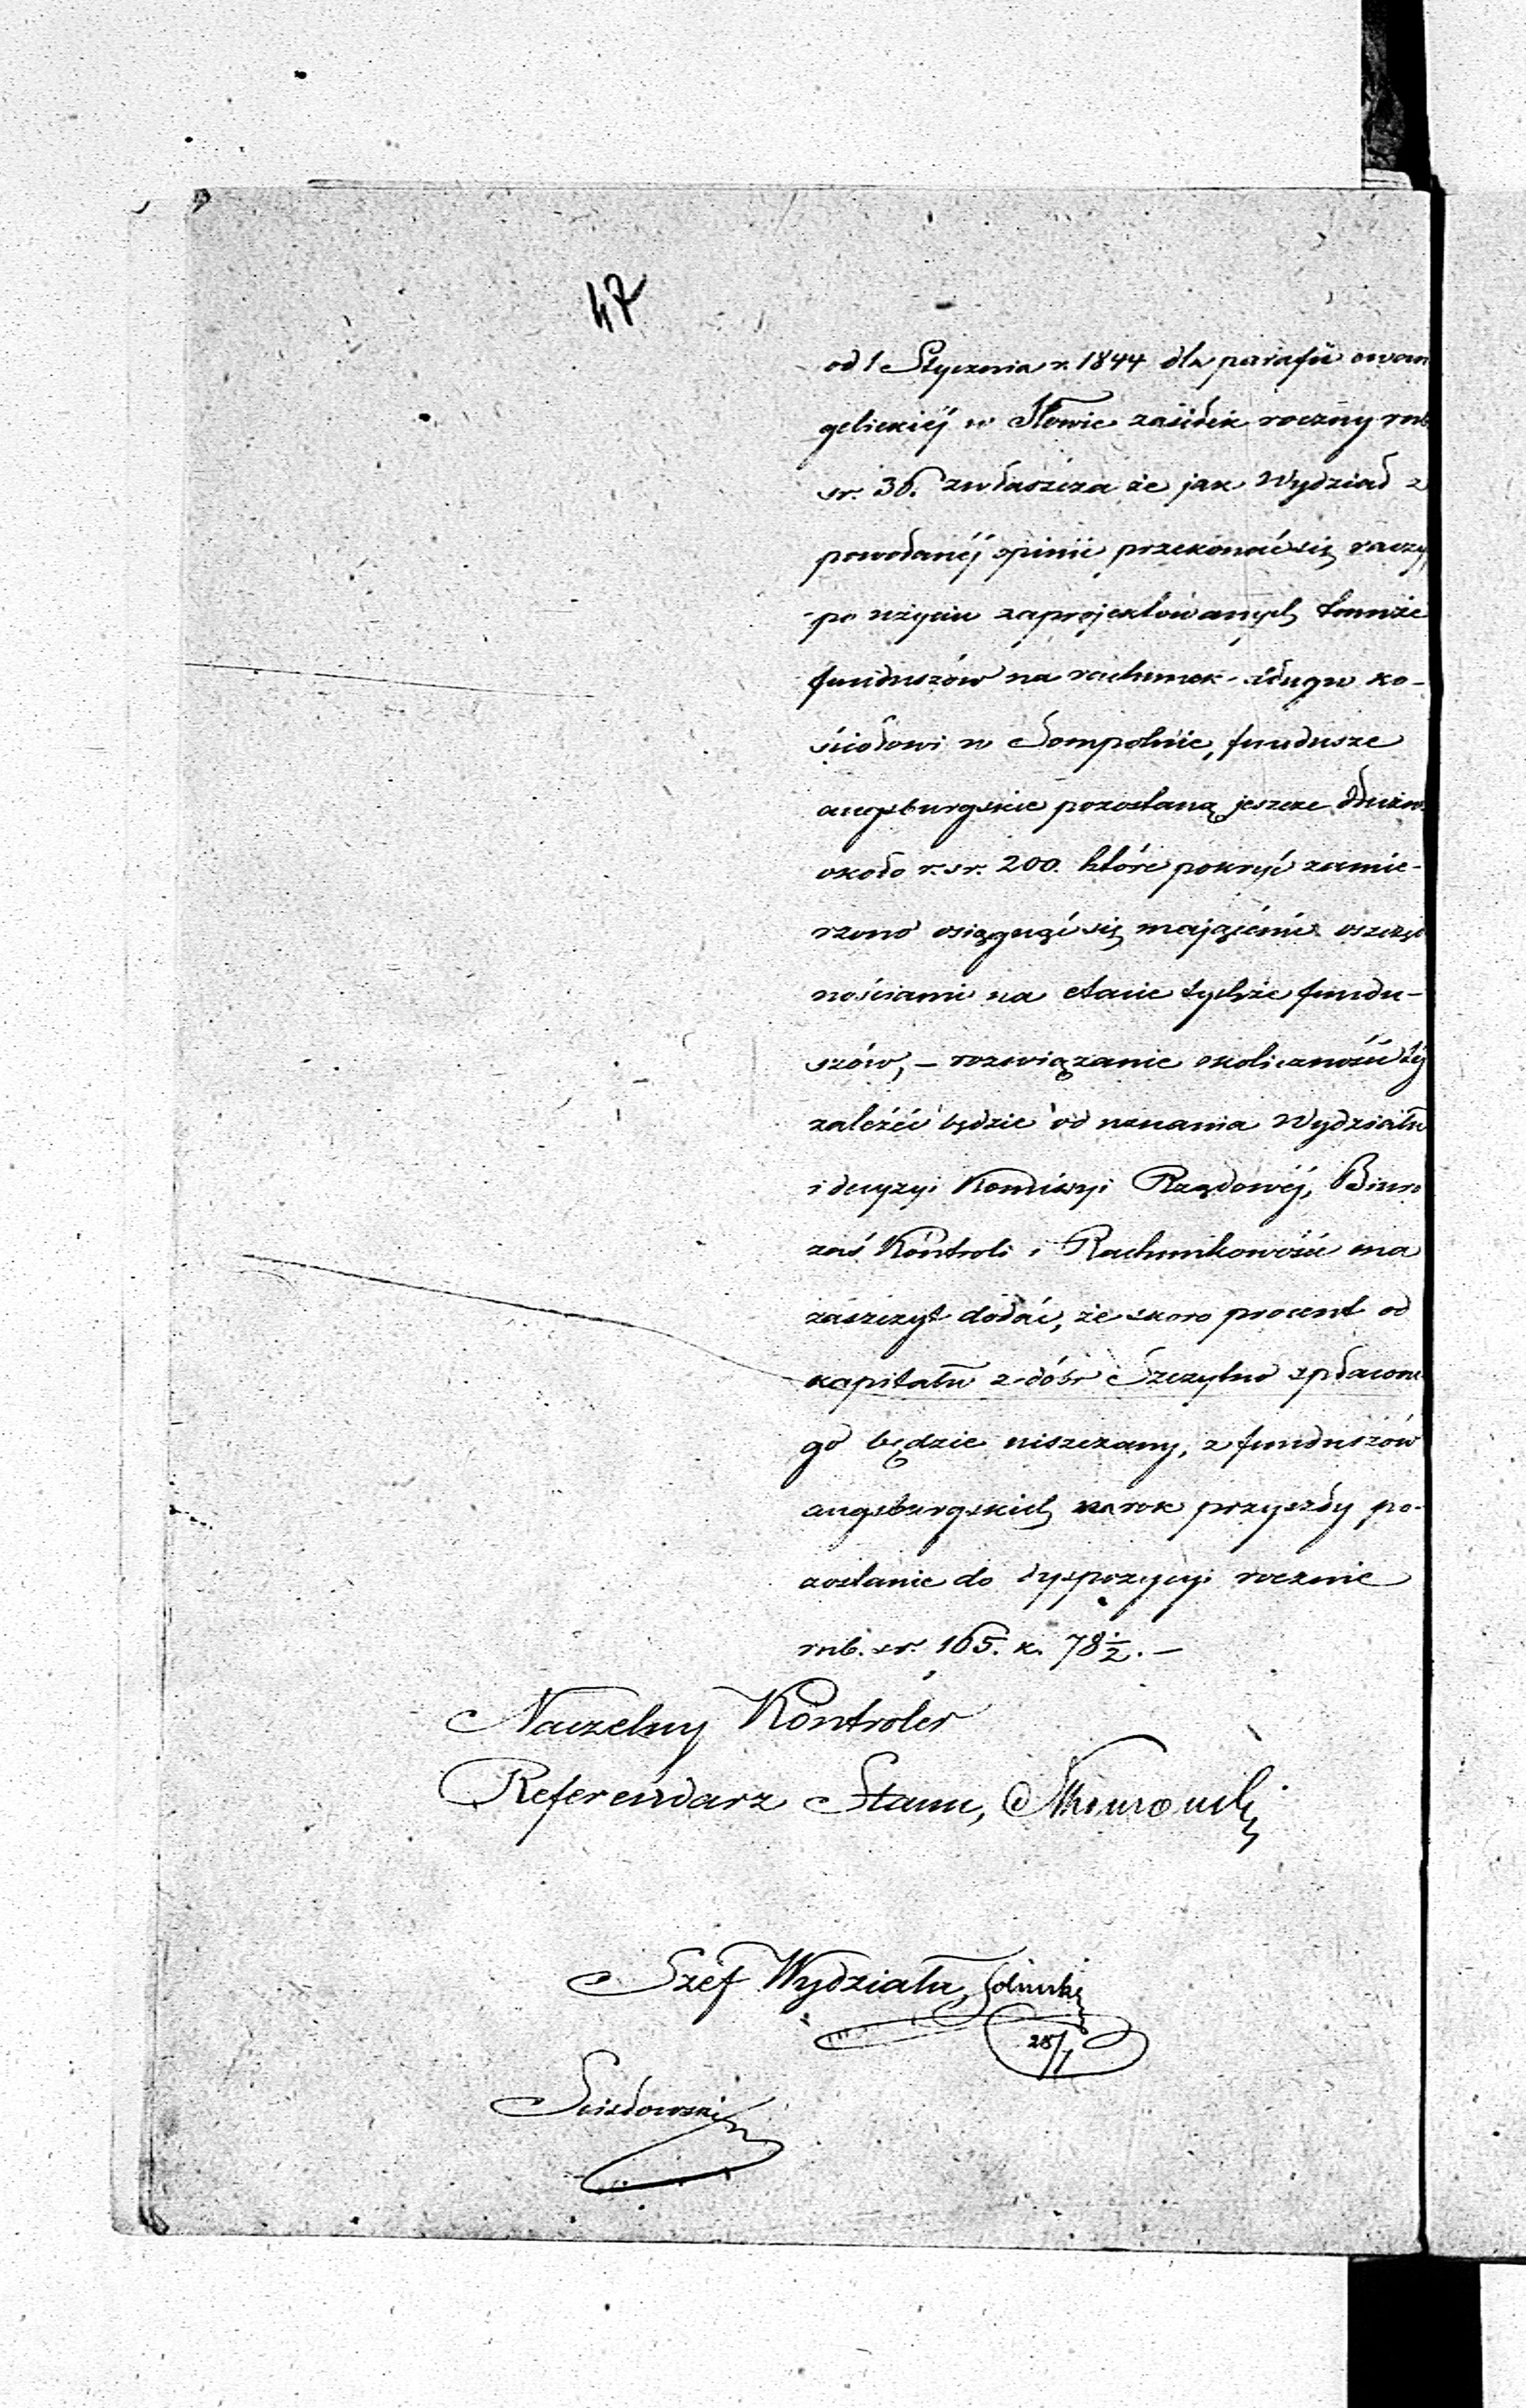 47
od 1 Stycznia r. 1844 dla parafii ewan
gelickiéj w Iłowie zasiłek roczny rub
sr. 30. zwłaszcza że jak Wydział z
powołanéj opinii przekonać się raczy,
po użyciu zaprojektowanych tamże
funduszów na rachunek długu ko-
ściołowi w Sompolnie, fundusze
augsburgskie pozostaną jeszcze dłużne
około r. sr. 200. które pokryć zamie-
rzono osiągnąć się mającémi oszczęd
nościami na etacie tychże fundu-
szów, – rozwiązanie okoliczności téj
zależéć będzie od uznania Wydziału
i decyzyi Kommisyi Rządowéj, Biuro
zaś Kontroli i Rachunkowości ma
zaszczyt dodać, że skoro procent od
kapitału z dóbr Szczytno spłacone
go będzie uiszczany, z funduszów
augsburgskich na rok przyszły po-
zostanie do dyspozycyi rocznie
rub. sr. 165. k. 78 1/2. –
Naczelny Kontroler
Referendarz Stanu,
Szef Wydziału,
28/7